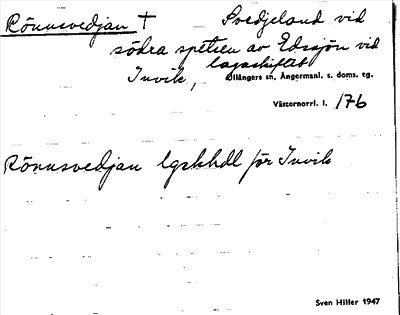 Rönnsvedjan † Svedjeland vid
södra spetsen av Edssjön vid
Invik, lagaskiftet
Ullångers sn, Ångermanl. s. doms. tg.
Västernorrl. l. 176
Rönnsvedjan lgskhdl för Invik
Sven Hiller 1947